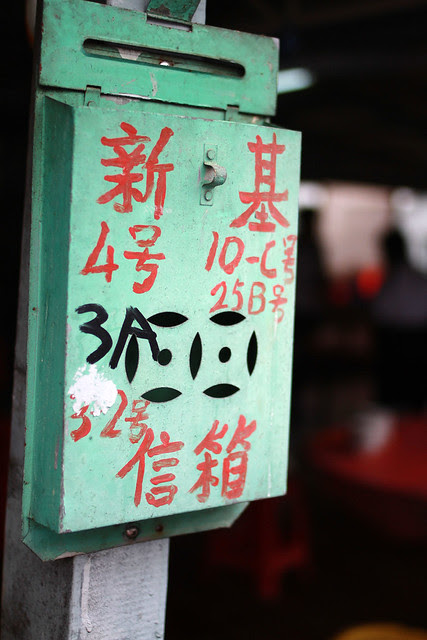 新 基
4号 10-C号
25B号
3A
32号
信箱